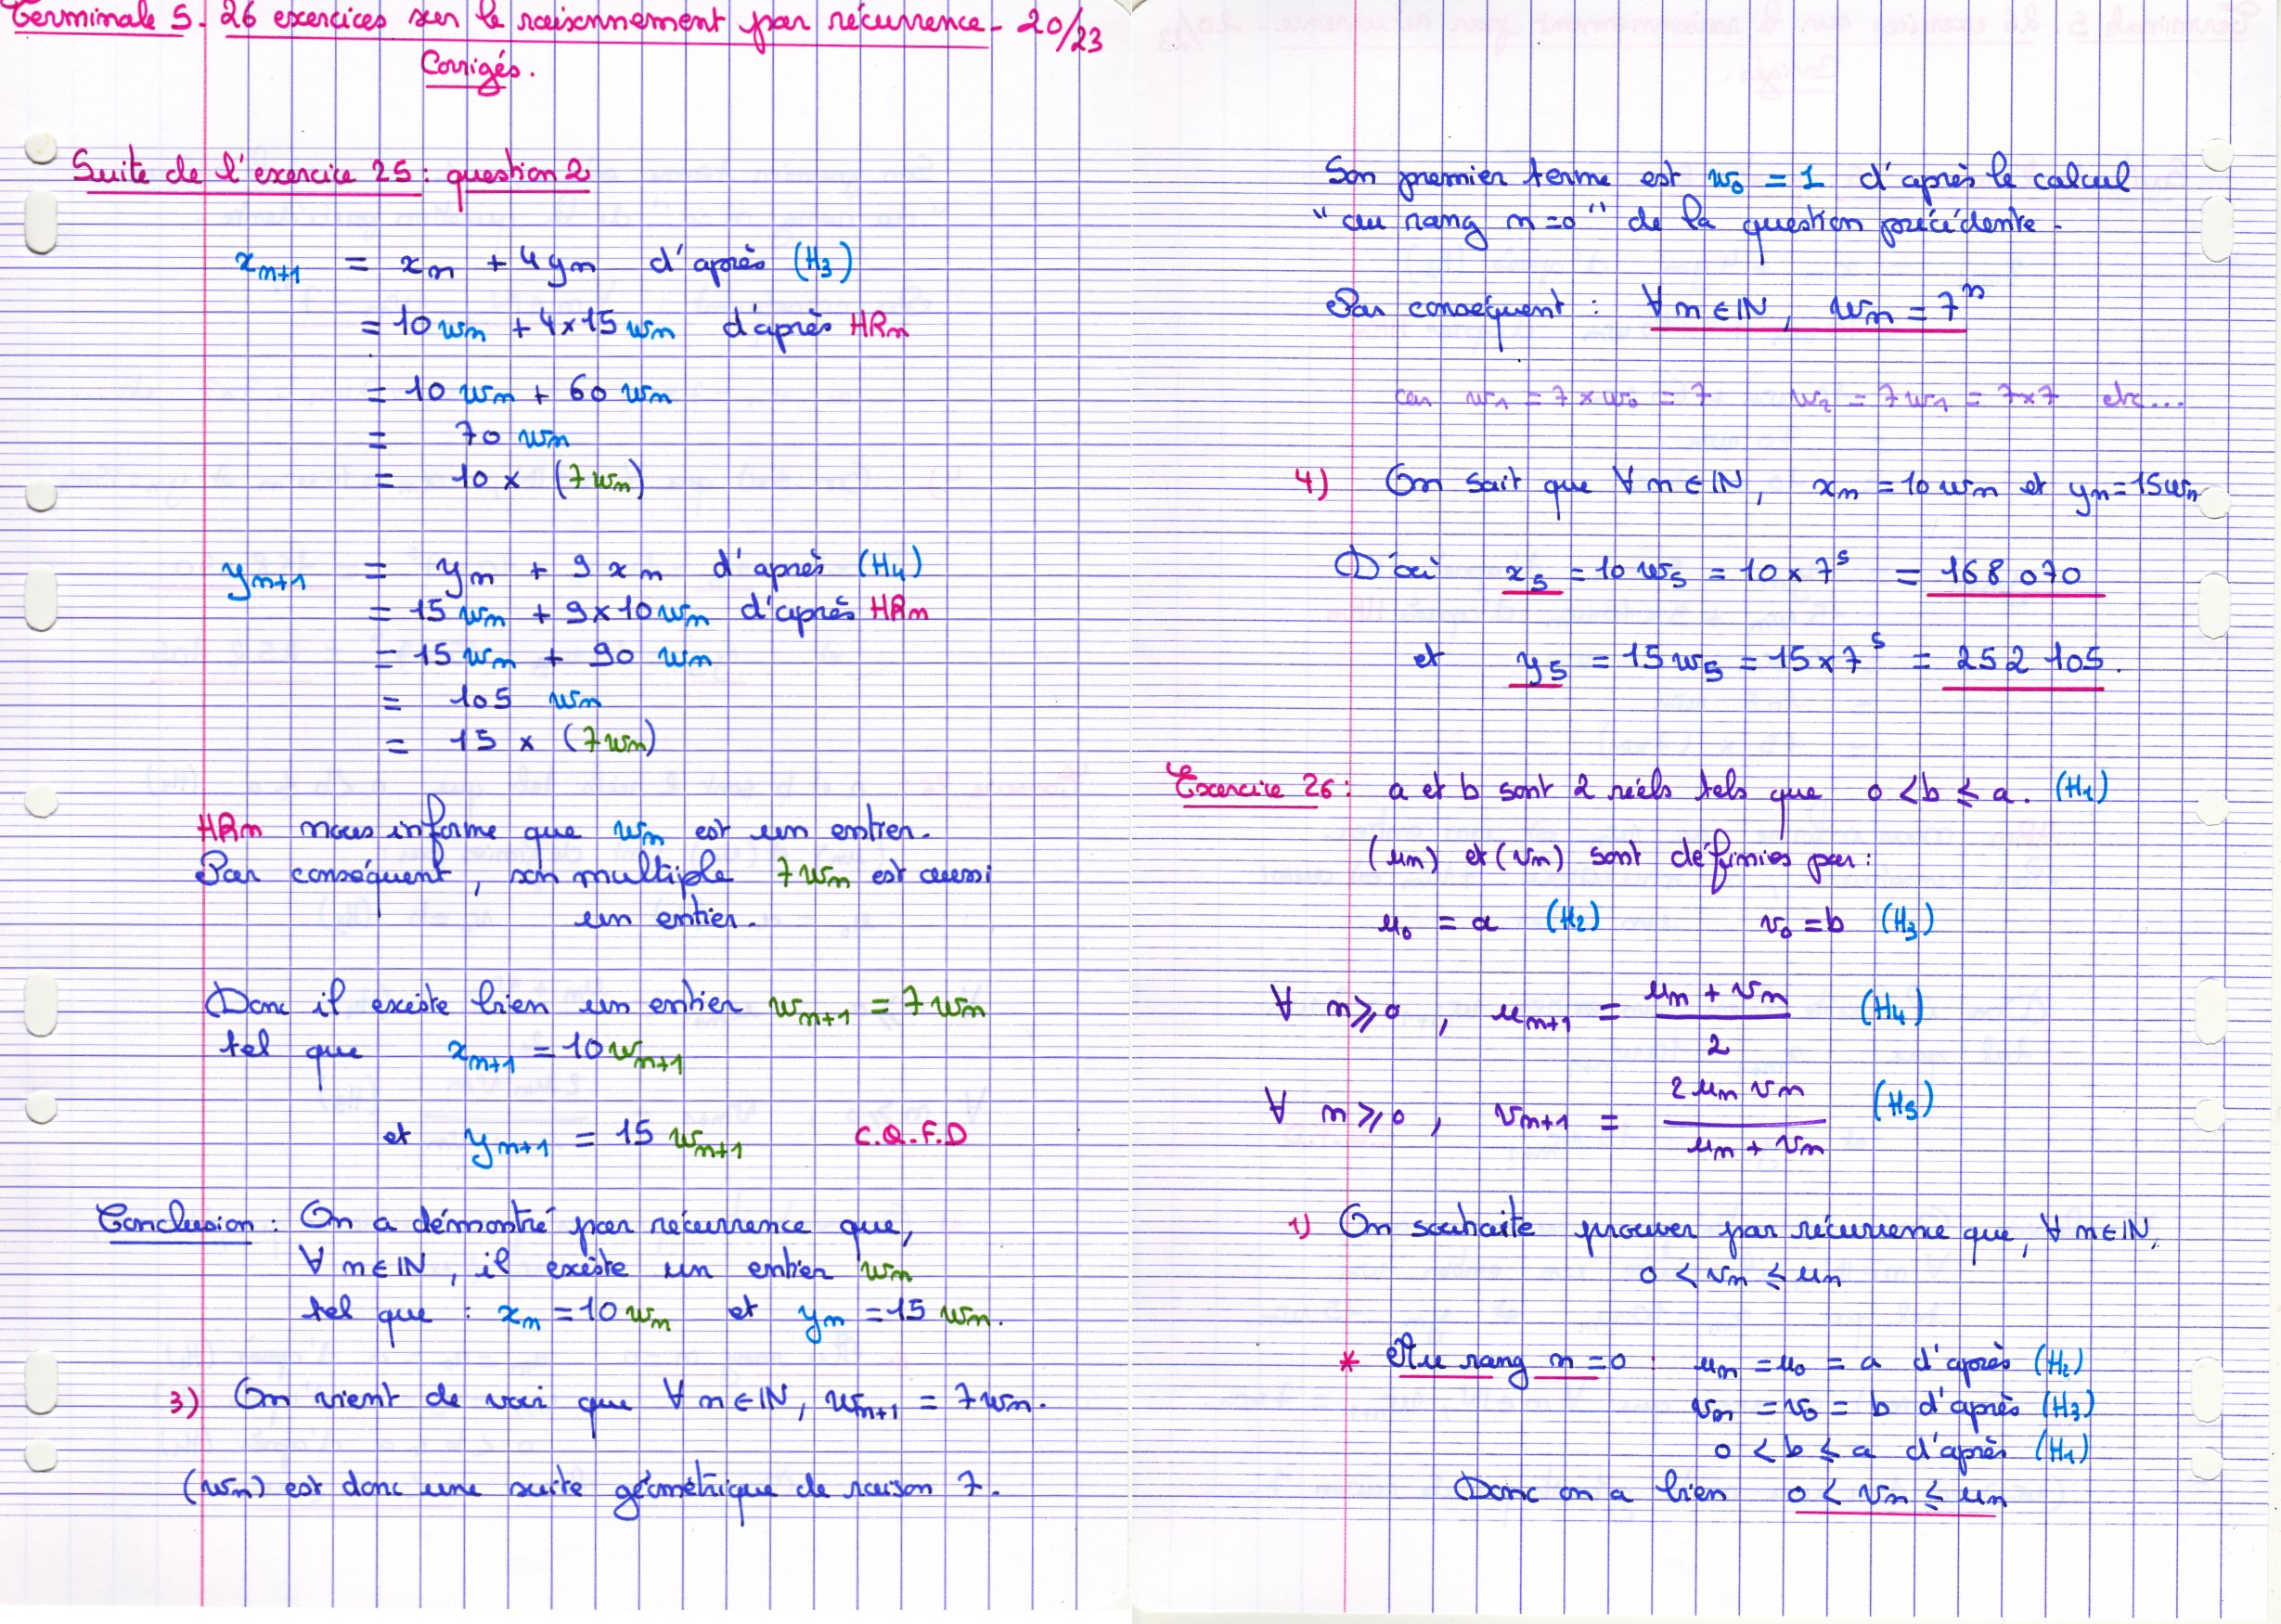 Terminale S. 26 exercices sur le raisonnement par récurrence - 20/23
Corrigés.
Suite de l'exercice 25 : question 2
x_{n+1} = x_n + 4y_n d'après (H3)
= 10 w_n + 4×15 w_n d'après HRn
= 10 w_n + 60 w_n
= 70 w_n
= 10 × (7w_n)
y_{n+1} = y_n + 9 x_n d'après (H4)
= 15 w_n + 9×10 w_n d'après HRn
= 15 w_n + 90 w_n
= 105 w_n
= 15 × (7w_n)
HRn nous informe que w_n est un entier.
Par conséquent, son multiple 7w_n est aussi
un entier.
Donc il existe bien un entier w_{n+1} = 7w_n
tel que x_{n+1} = 10 w_{n+1}
et y_{n+1} = 15 w_{n+1} C.Q.F.D
Conclusion : On a démontré par récurrence que,
∀ n ∈ ℕ, il existe un entier w_n
tel que : x_n = 10 w_n et y_n = 15 w_n.
3) On vient de voir que ∀ n ∈ ℕ, w_{n+1} = 7w_n.
(w_n) est donc une suite géométrique de raison 7.
Son premier terme est w_0 = 1 d'après le calcul
"au rang n=0" de la question précédente.
Par conséquent : ∀ n ∈ ℕ, w_n = 7^n
car w_1 = 7 × w_0 = 7 w_2 = 7w_1 = 7×7 etc...
4) On sait que ∀ n ∈ ℕ, x_n = 10 w_n et y_n = 15 w_n
D'où x_5 = 10 w_5 = 10 × 7^5 = 168 070
et y_5 = 15 w_5 = 15 × 7^5 = 252 105.
Exercice 26 : a et b sont 2 réels tels que 0 < b ⩽ a. (H1)
(u_n) et (v_n) sont définies par :
u_0 = a (H2) v_0 = b (H3)
∀ n ⩾ 0, u_{n+1} = (u_n + v_n)/2 (H4)
∀ n ⩾ 0, v_{n+1} = (2 u_n v_n)/(u_n + v_n) (H5)
1) On souhaite prouver par récurrence que, ∀ n ∈ ℕ,
0 < v_n ⩽ u_n
* Au rang n = 0 : u_n = u_0 = a d'après (H2)
v_n = v_0 = b d'après (H3)
0 < b ⩽ a d'après (H1)
Donc on a bien 0 < v_n ⩽ u_n